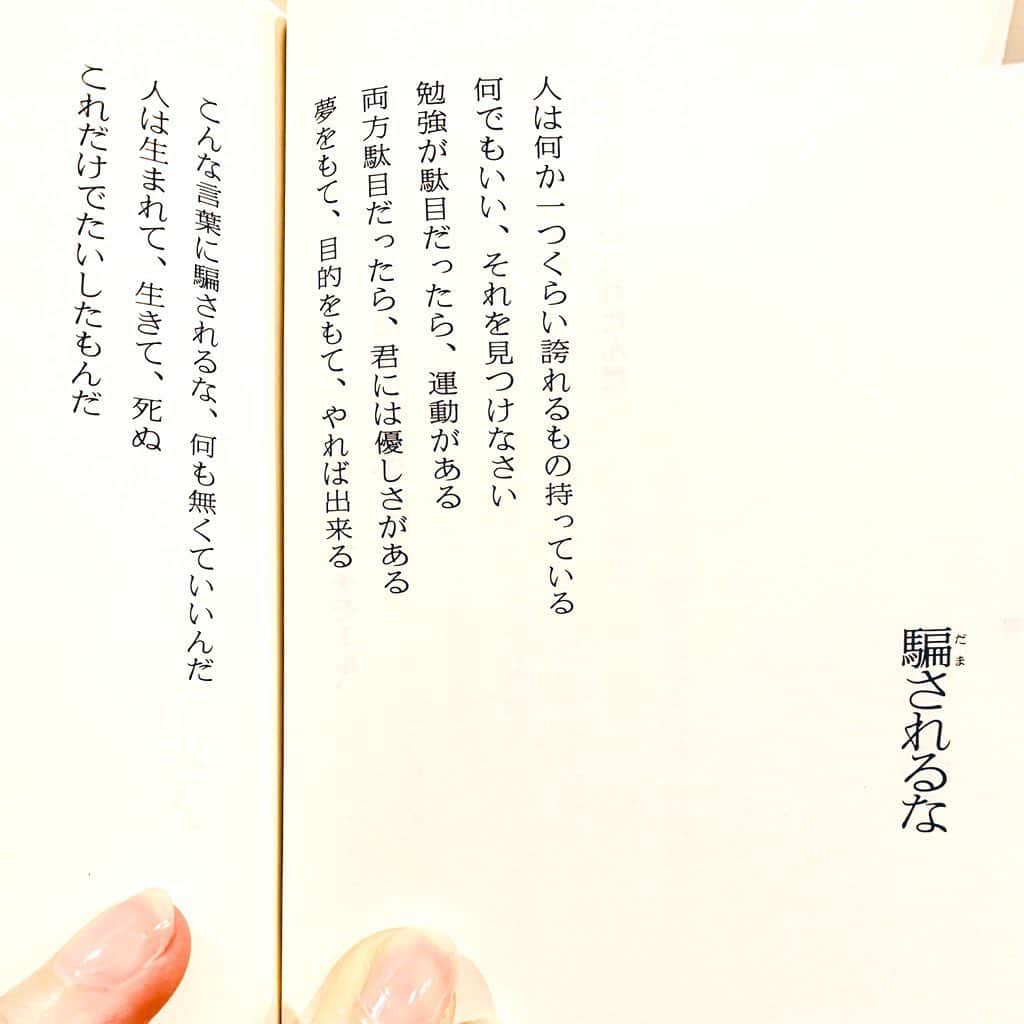 騙されるな
だま
人は何か一つくらい誇れるもの持っている
何でもいい、それを見つけなさい
勉強が駄目だったら、運動がある
両方駄目だったら、君には優しさがある
夢をもて、目的をもて、やれば出来る
こんな言葉に騙されるな、何も無くていいんだ
人は生まれて、生きて、死ぬ
これだけでたいしたもんだ